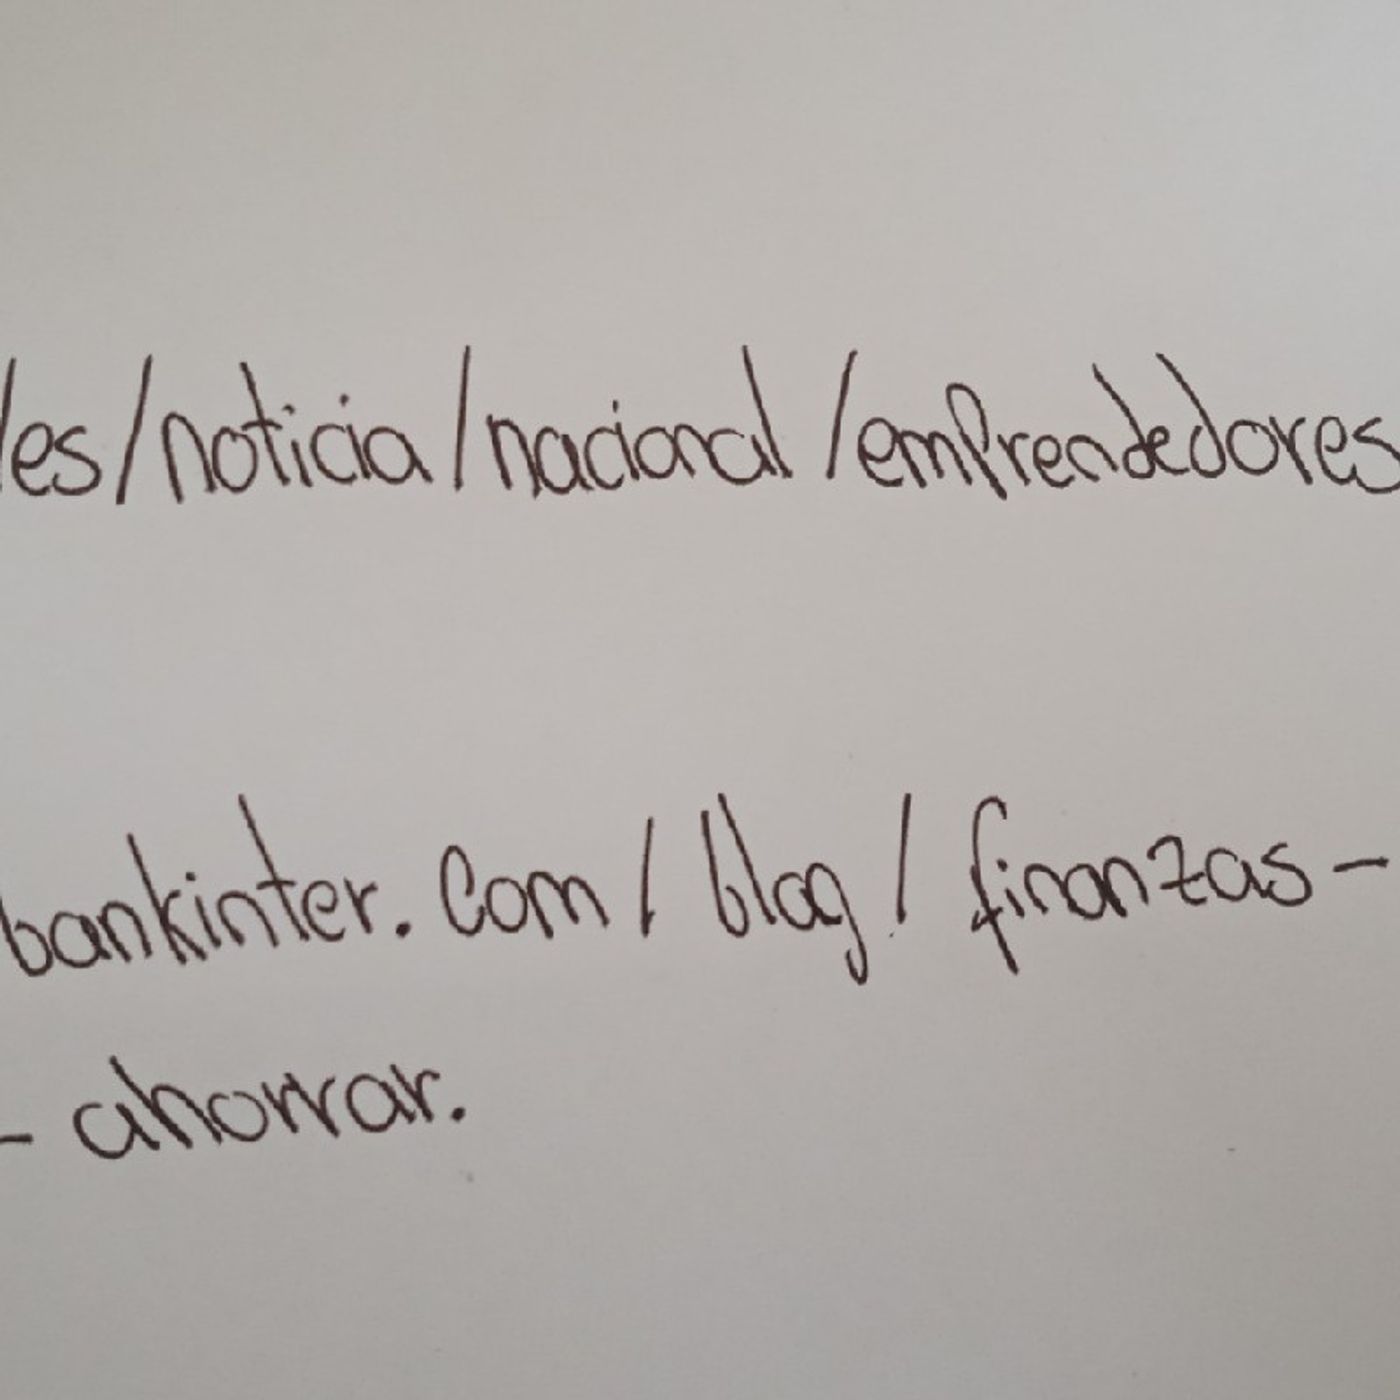 /es/noticia/nacional/emprendedores
bankinter.com/blog/finanzas-
- ahorrar.